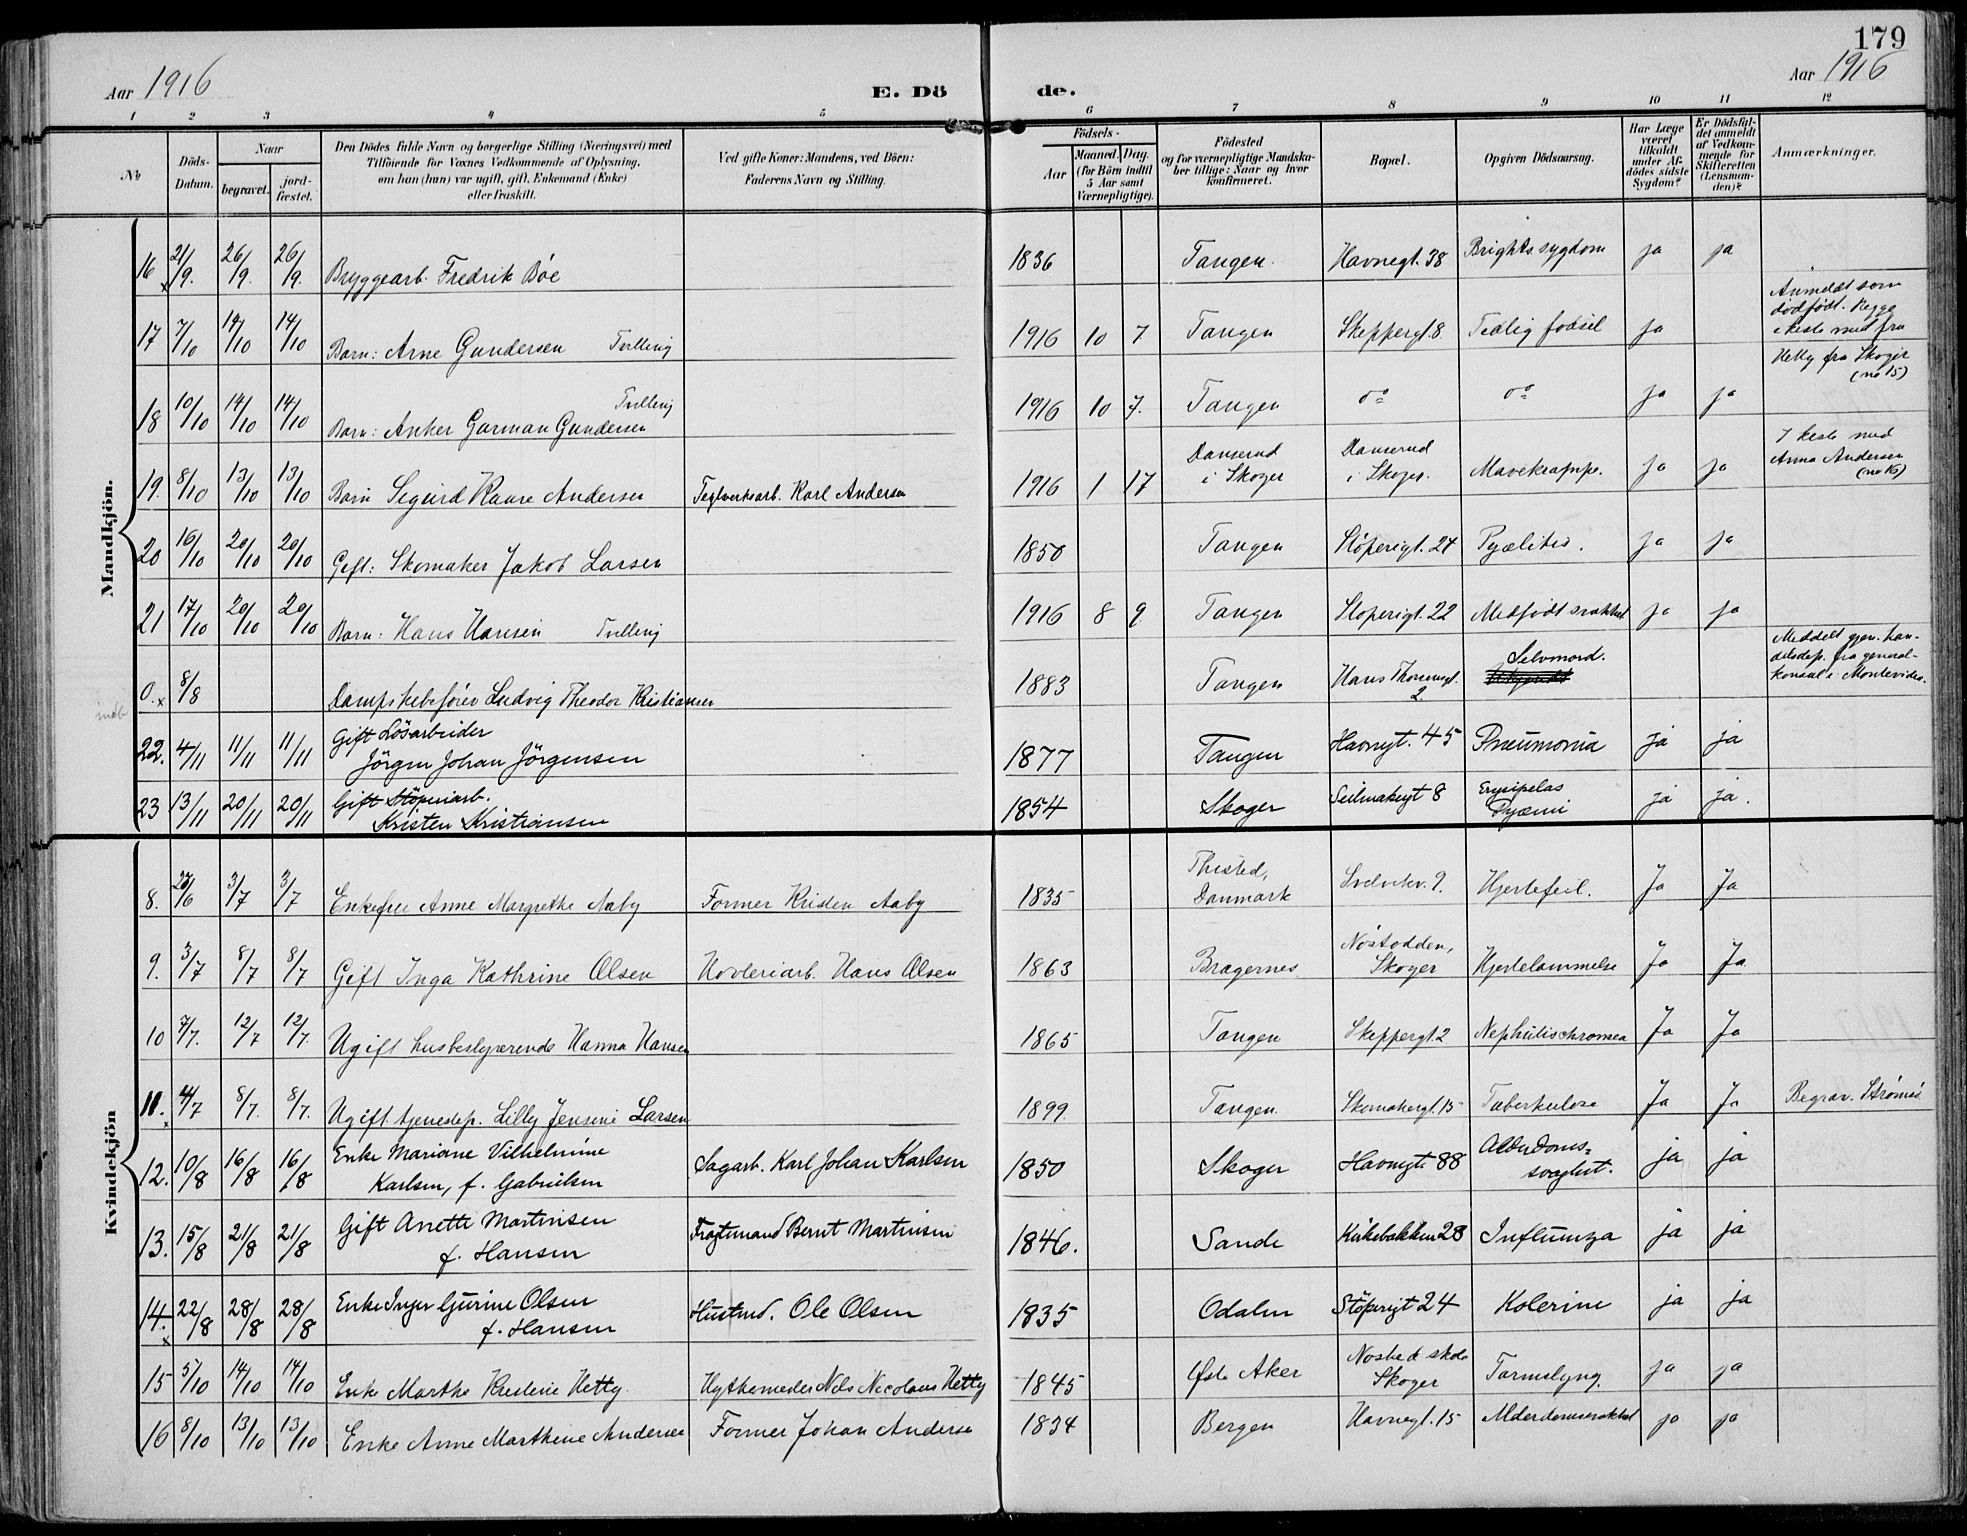 179
Aar 1916
E. Dö
de.
Aar 1916
1 2 3 4 5 6 7 8 9 10 11 12
No
Döds-Datum.
Naar
begravet.
jord-fæstet.
Den Dödes fulde Navn og borgerlige Stilling (Næringsvei) med
Tilföiende for Voxnes Vedkommende af Oplysning,
om han (hun) var ugift, gift, Enkemand (Enke)
eller fraskilt.
Ved gifte Koner: Mandens, ved Börn:
Faderens Navn og Stilling.
Födsels-
Aar
Maaned. Dag.
(for Börn indtil
5 Aar samt
Værnepligtige).
Födested
og for værnepligtige Mandska-
ber tillige: Naar og hvor
konfirmeret.
Bopæl.
Opgiven Dödsaarsag.
Har Læge
været
tilkaldt
under Af-
dödes sidste
Sygdom?
Er Dödsfal-
det anmeldt
af Vedkom-
mende for
Skifteretten
(Lensman-
den)?
Anmærkninger.
Mandkjön.
16 x 21/9. 26/9. 26/9. Bryggearb. Fredrik Bóe 1836 Tangen. Havnegt. 38 Brights sygdom ja ja
17 7/10 14/10 14/10 Barn: Arne Gundersen Tvilling 1916 10 7. Tangen Skeppergt. 8. Tidlig fødsel ja
Anmeldt som
dødfødt. Begge
i kiste med fru
Hetty fra Skoger
(no 15)
18 10/10 14/10 14/10 Barn: Anker Garman Gundersen Tvilling 1916 10 7. Tangen do do ja ja
19. 8/10 13/10 13/10 Barn Sigurd Kaare Andersen Teglverksarb. Karl Andersen 1916 1 17 Danserud
i Skoger Danserud
i Skoger. Mavekrampe. ja ja
I kiste med
Anna Andersen
(no 16)
20 16/10 20/10 20/10 Gift: Skomaker Jakob Larsen 1850 Tangen Støperigt. 24 Pyælites. ja ja
21 17/10 20/10 20/10 Barn: Hans Hansen Tvilling 1916 8 9. Tangen Støperigt. 22 Medfødt svakhet ja ja
0. x 8/8 Dampskibsfører Ludvig Theodor Kristiansen 1883 Tangen Hans Thornesgt.
2 Selvmord.
Meddelt gjen. han-
delsdep. fra general-
konsul i Montevideo.
indb
22. 4/11 11/11 11/11 Gift Lösarbeider
Jörgen Johan Jörgensen 1877 Tangen Havnegt. 45 Pneumonia ja ja
23 13/11 20/11 20/11 Gift Stöperiarb.
Kristen Kristiansen 1854 Skoger Seilmakergt 8 Erysipelas
Pyæmi ja ja.
Kvindekjön
8. 3/7 3/7 Enkefru Anne Margrethe Aaby Former Kristen Aaby 1835 Thisted,
Danmark Svelvikv. 9. Hjertefeil. Ja Ja
9. 3/7 8/7 8/7 Gift Inga Kathrine Olsen Høvleriarb. Hans Olsen 1863 Bragernes Nøstodden,
Skoger Hjertelammelse Ja Ja
10 7/7. 12/7 12/7. Ugift husbestyrerende Hanna Hansen 1865 Tangen Skeppergt. 2 Nephritis chronica Ja Ja
11. x 4/7 8/7. 8/7. Ugift tjenestep. Lilly Jensine Larsen 1899. Tangen Skomakergt. 15 Tuberkulose Ja Ja Begrav. Strømsö
12. 10/8 16/8 16/8 Enke Mariane Vilhelmine
Karlsen, f. Gabrielsen Sagarb. Karl Johan Karlsen 1850 Skoger Havnegt. 88 Alderdoms-
svaghet. ja ja
13. 15/8 21/8 21/8 Gift Anette Martinsen
f. Hansen Fragtemand Bernt Martinsen 1846. Sande Kirkebakken 28 Influenza ja ja
14. x 22/8 28/8 28/8 Enke Inger Gurine Olsen
f. Hansen Hustmd. Ole Olsen 1835 Odalen Støperigt 24 Kolerine ja ja
15 5/10 14/10 14/10 Enke Marthe Kristine Hetty. Hyttemester Nils Nicolaus Hetty 1845 Østre Aker Skoger Tarmslyng. ja ja
16 8/10 13/10 13/10 Enke Anne Marthine Andersen Former Johan Andersen 1834 Bergen Havnegt. 15 Alderdomssvakhet ja ja